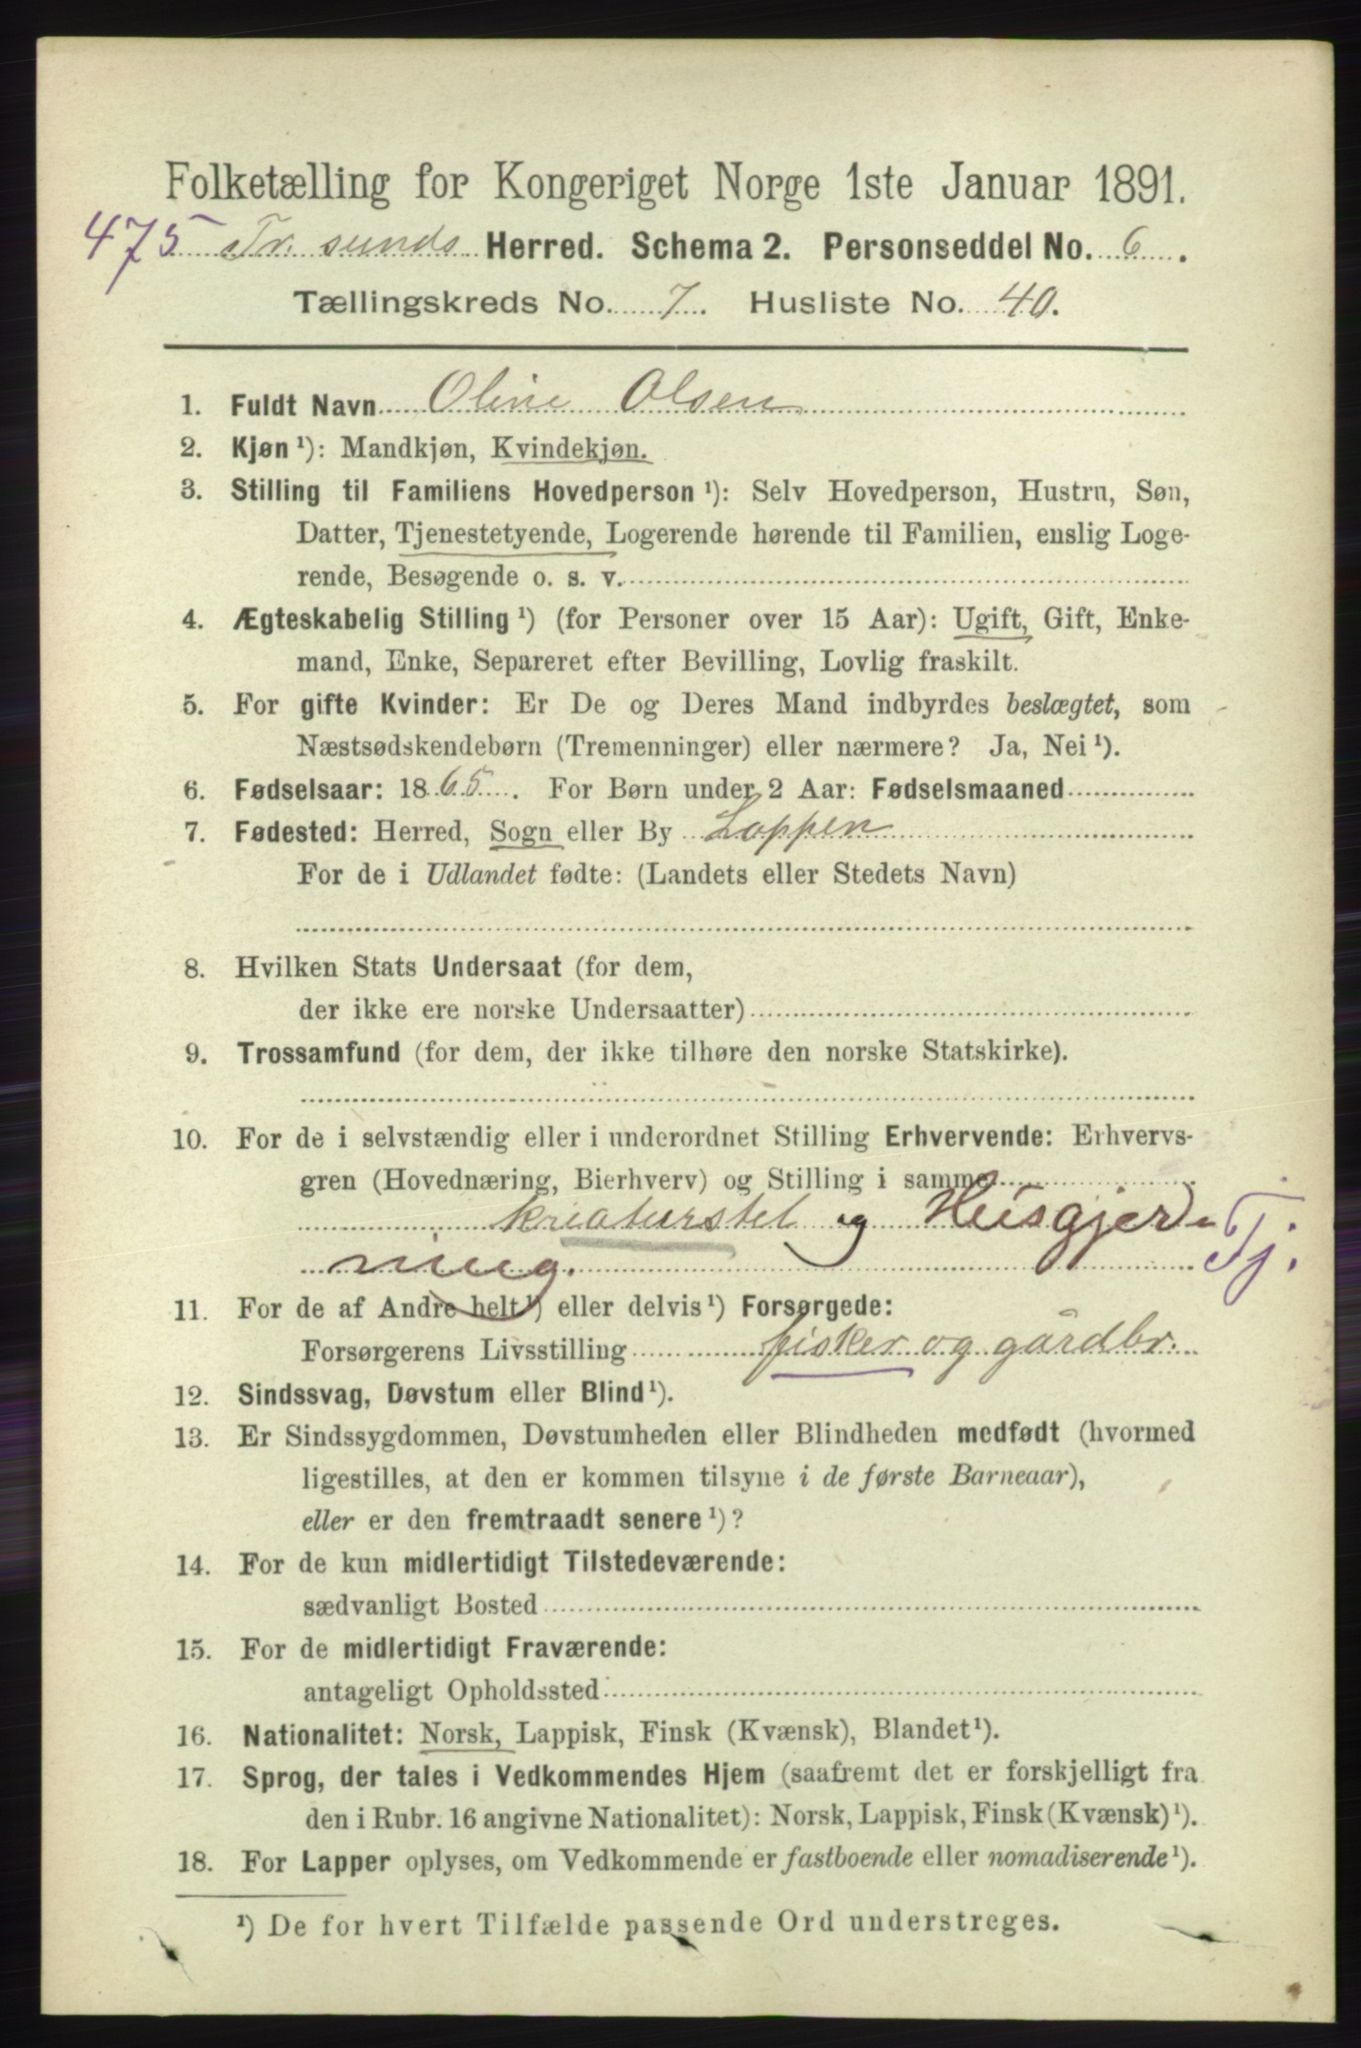 Folketælling for Kongeriget Norge 1ste Januar 1891.
475 Tr. sunds Herred. Schema 2. Personseddel No. 6.
Tællingskreds No. 7. Husliste No. 40.
1. Fuldt Navn Oline Olsen
2. Kjøn ¹): Mandkjøn, Kvindekjøn.
3. Stilling til Familiens Hovedperson ¹): Selv Hovedperson, Hustru, Søn,
Datter, Tjenestetyende, Logerende hørende til Familien, enslig Loge-
rende, Besøgende o. s. v.
4. Ægteskabelig Stilling ¹) (for Personer over 15 Aar): Ugift, Gift, Enke-
mand, Enke, Separeret efter Bevilling, Lovlig fraskilt.
5. For gifte Kvinder: Er De og Deres Mand indbyrdes beslægtet, som
Næstsødskendebørn (Tremenninger) eller nærmere? Ja, Nei ¹).
6. Fødselsaar: 1865. For Børn under 2 Aar: Fødselsmaaned
7. Fødested: Herred, Sogn eller By Loppen
For de i Udlandet fødte: (Landets eller Stedets Navn)
8. Hvilken Stats Undersaat (for dem,
der ikke ere norske Undersaatter)
9. Trossamfund (for dem, der ikke tilhøre den norske Statskirke).
10. For de i selvstændig eller i underordnet Stilling Erhvervende: Erhvervs-
gren (Hovednæring, Bierhverv) og Stilling i samme
kreaturstel og Husgjer-
ning. Tj.
11. For de af Andre helt ¹) eller delvis ¹) Forsørgede:
Forsørgerens Livsstilling fisker og gårdbr.
12. Sindssvag, Døvstum eller Blind ¹).
13. Er Sindssygdommen, Døvstumheden eller Blindheden medfødt (hvormed
ligestilles, at den er kommen tilsyne i de første Barneaar),
eller er den fremtraadt senere ¹)?
14. For de kun midlertidigt Tilstedeværende:
sædvanligt Bosted
15. For de midlertidigt Fraværende:
antageligt Opholdssted
16. Nationalitet: Norsk, Lappisk, Finsk (Kvænsk), Blandet ¹).
17. Sprog, der tales i Vedkommendes Hjem (saafremt det er forskjelligt fra
den i Rubr. 16 angivne Nationalitet): Norsk, Lappisk, Finsk (Kvænsk) ¹).
18. For Lapper oplyses, om Vedkommende er fastboende eller nomadiserende ¹).
¹) De for hvert Tilfælde passende Ord understreges.